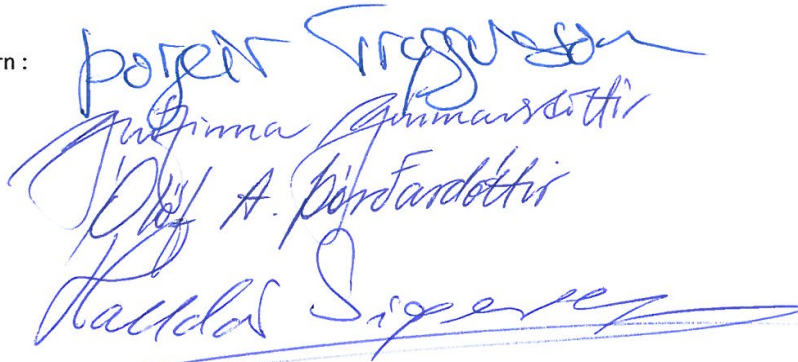 rn :
Þorgeir Tryggvason
Guðfinna Gunnarsdóttir
Ólöf A. Þórðardóttir
Halldór